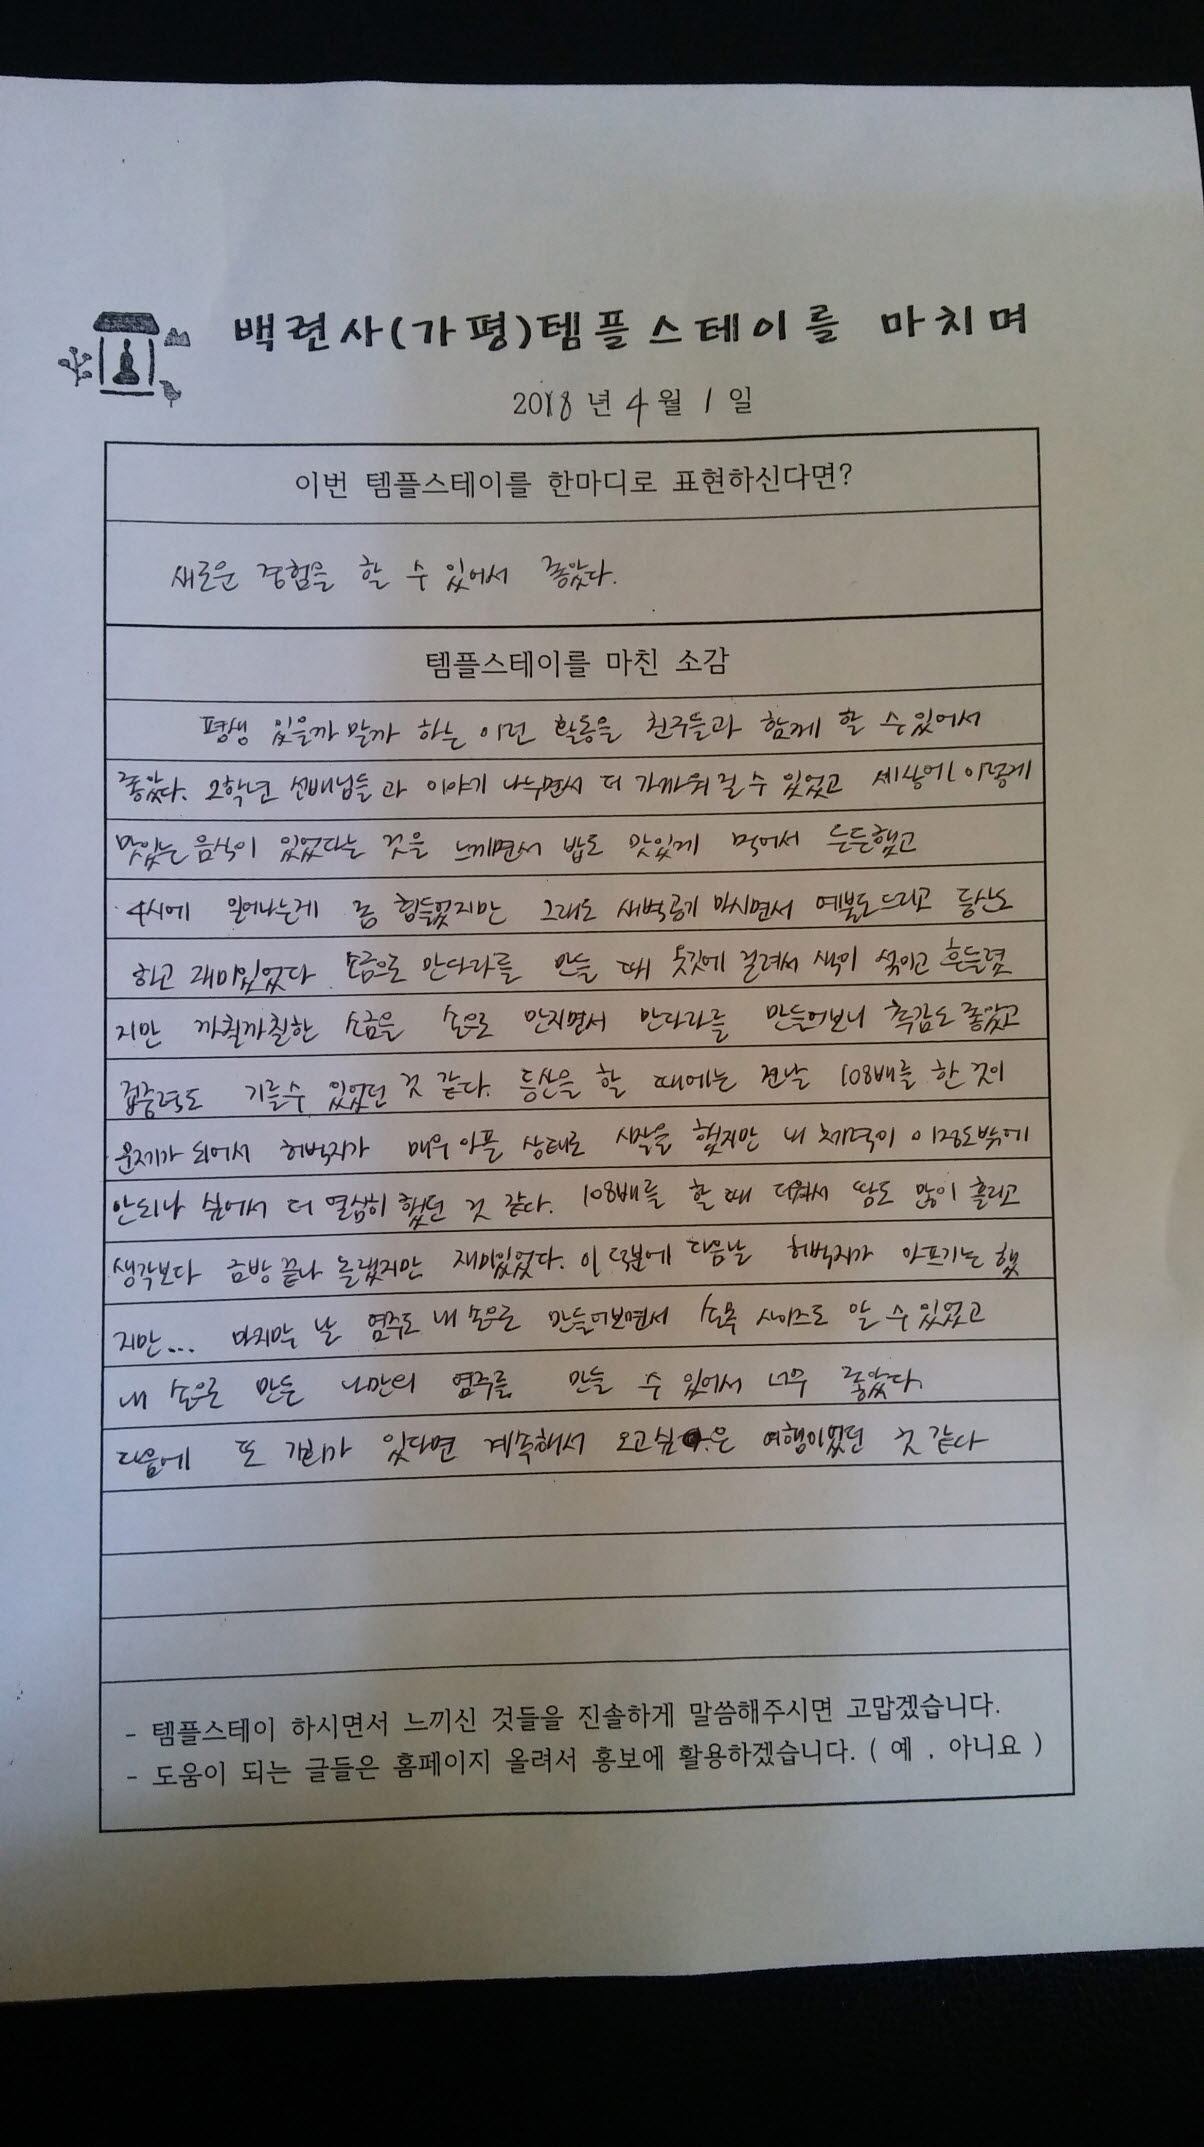 백련사(가평)템플스테이를 마치며
2018년 4월 1일
이번 템플스테이를 한마디로 표현하신다면?
새로운 경험을 할 수 있어서 좋았다.
템플스테이를 마친 소감
평생 있을까 말까 하는 이런 활동을 친구들과 함께 할 수 있어서
좋았다. 2학년 선배님들과 이야기 나누면서 더 가까워질 수 있었고 세상에 이렇게
맛있는 음식이 있었다는 것을 느끼면서 밥도 맛있게 먹어서 든든했고
4시에 일어나는게 좀 힘들었지만 그래도 새벽공기 마시면서 예불도 드리고 등산도
하고 재미있었다 소금으로 만다라를 만들 때 옷깃에 걸려서 색이 섞이고 흔들렸
지만 까칠까칠한 소금을 손으로 만지면서 만다라를 만들어보니 촉감도 좋았고
집중력도 기를수 있었던 것 같다. 등산을 할 때에는 전날 108배를 한 것이
문제가 되어서 허벅지가 매우 아픈 상태로 시작을 했지만 내 체력이 이정도밖에
안되나 싶어서 더 열심히 했던 것 같다. 108배를 할 때 더워서 땀도 많이 흘리고
생각보다 금방 끝나 놀랬지만 재미있었다. 이 덕분에 다음날 허벅지가 아프기는 했
지만... 마지막 날 염주도 내 손으로 만들어보면서 손목 사이즈도 알 수 있었고
내 손으로 만든 나만의 염주를 만들 수 있어서 너무 좋았다.
다음에 또 기회가 있다면 계속해서 오고싶은 여행이었던 것 같다
- 템플스테이 하시면서 느끼신 것들을 진솔하게 말씀해주시면 고맙겠습니다.
- 도움이 되는 글들은 홈페이지 올려서 홍보에 활용하겠습니다. ( 예 , 아니요 )